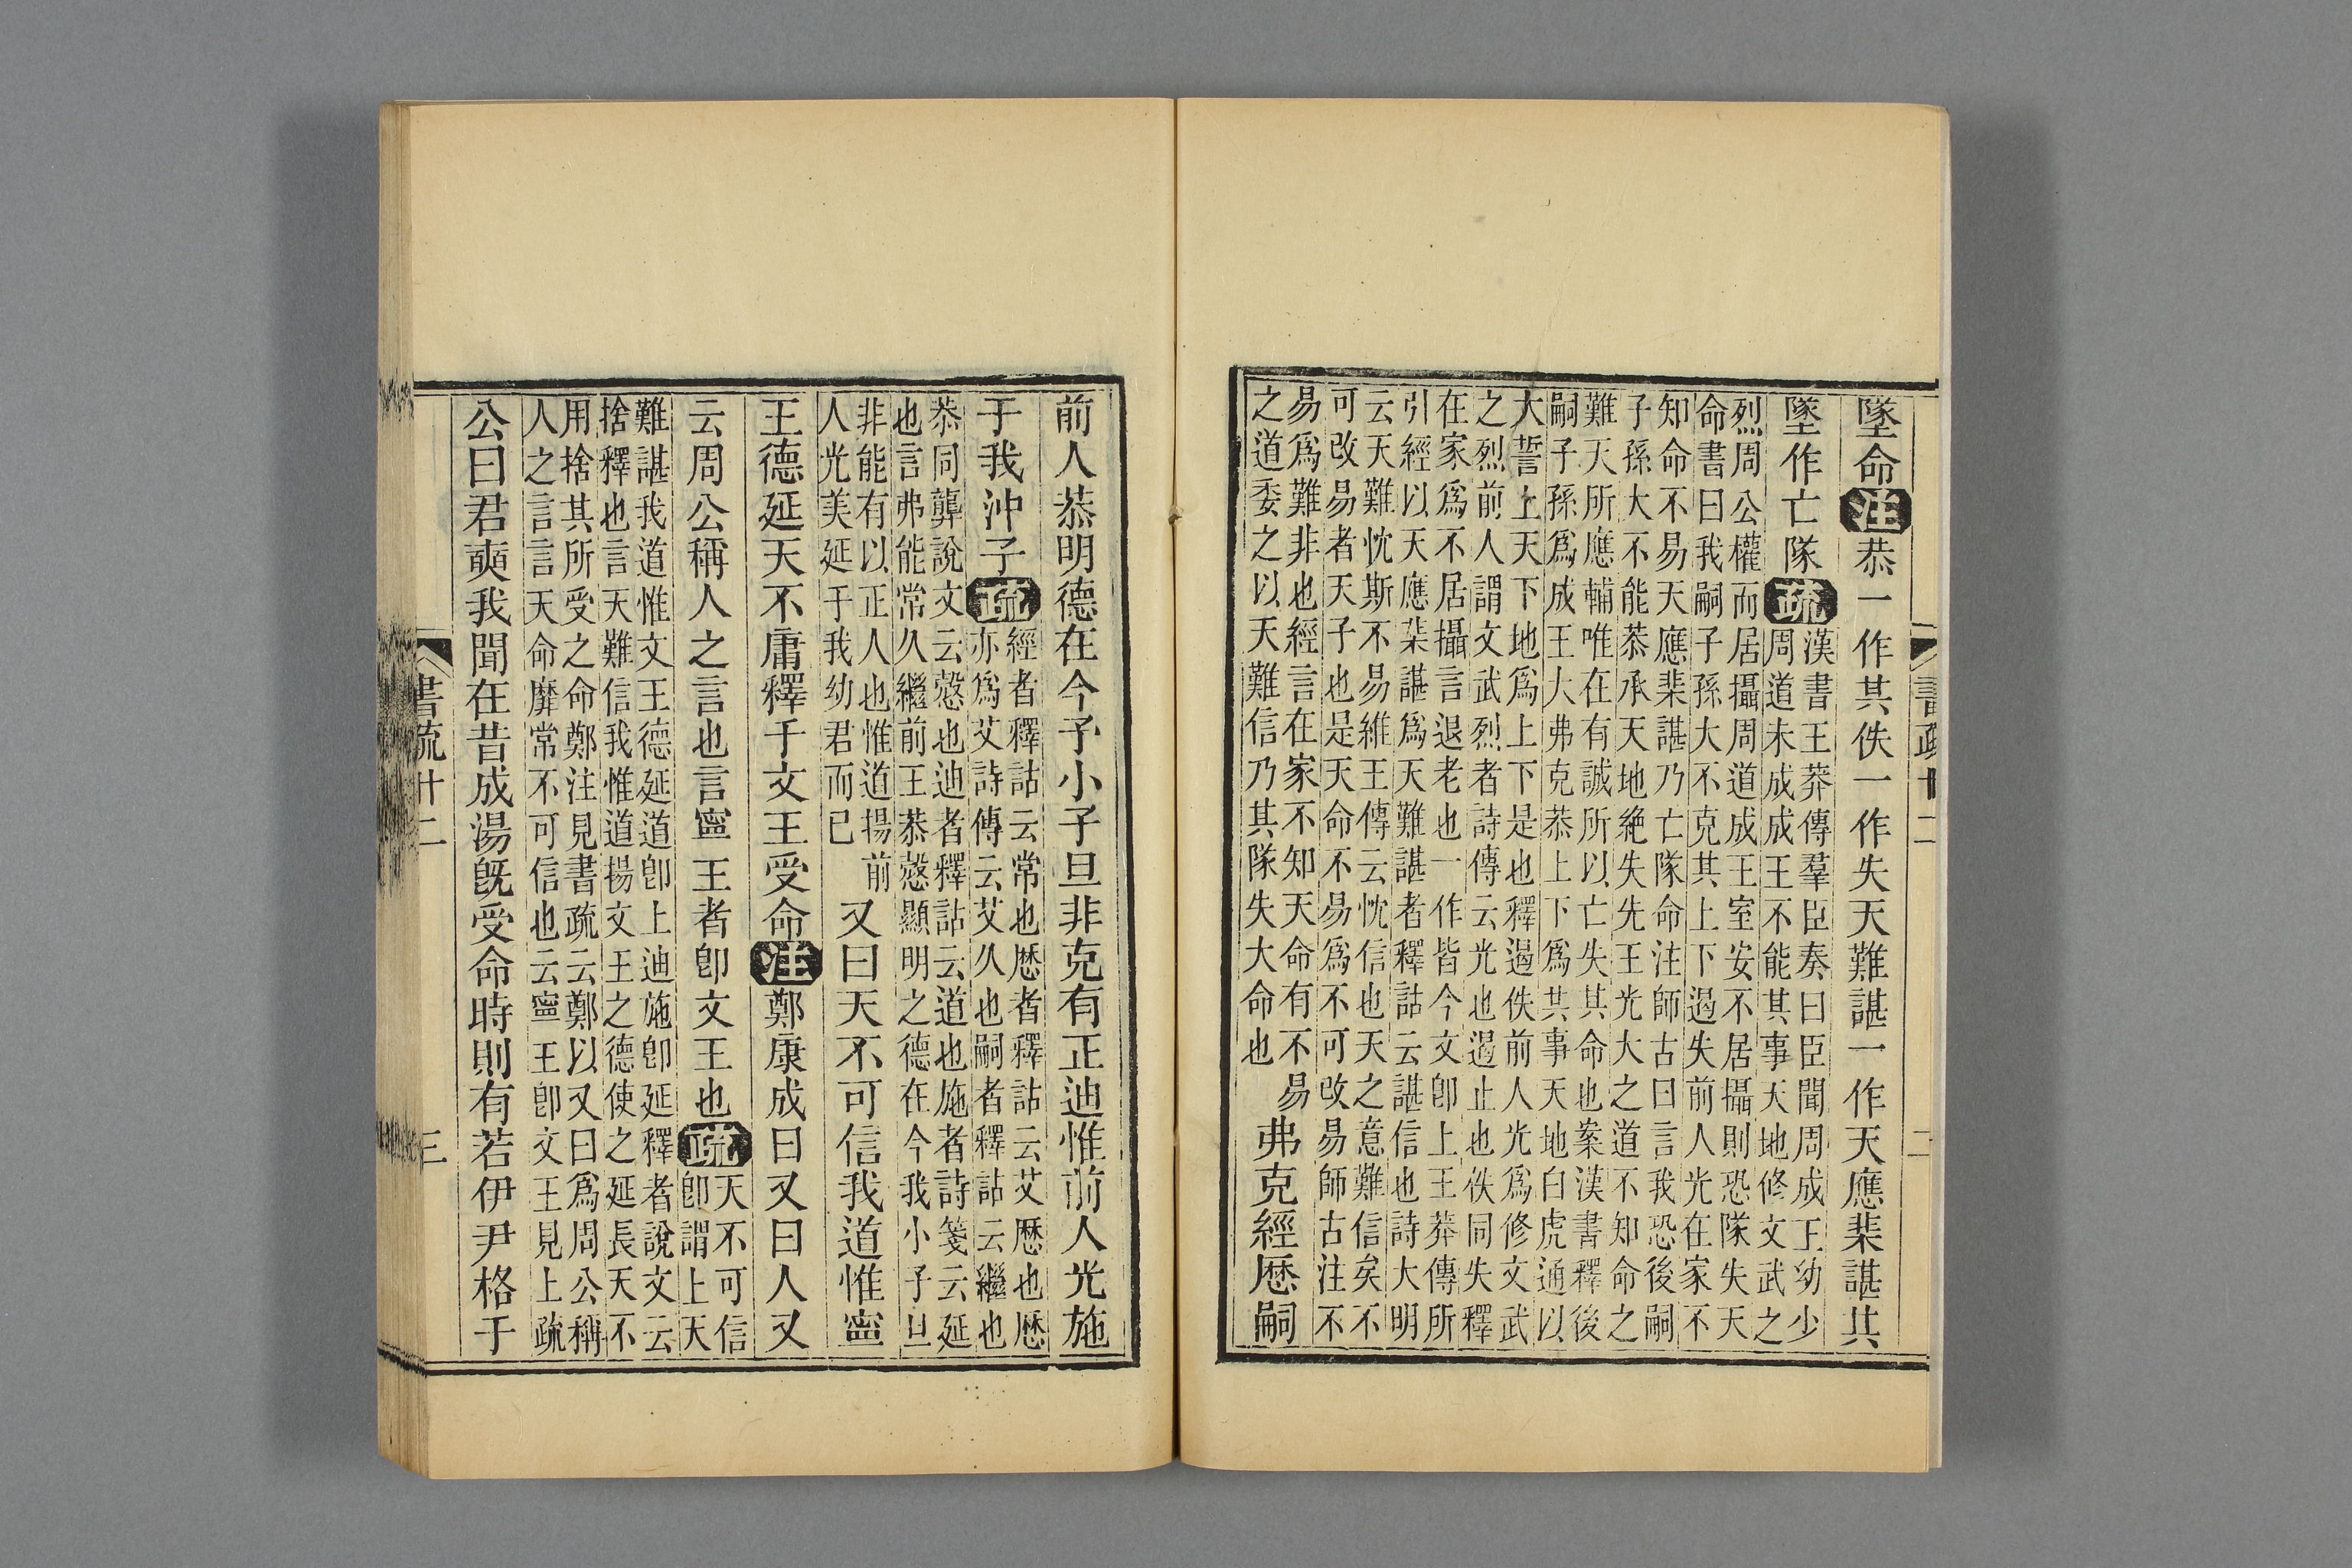 墜命注恭一作共佚一作失天難諶一作天應棐諶其
墜作亡隊疏漢書王莽傳羣臣奏曰臣聞周成王幼少
周道未成成王不能其事天地修文武之
烈周公權而居攝周道成王室安不居攝則恐隊失天
命書曰我嗣子孫大不克其上下遏失前人光在家不
知命不易天應棐諶乃亡隊命注師古曰言我恐後嗣
子孫大不能恭承天地絶失先王光大之道不知命之
難天所應輔唯在有誠所以亡失其命也案漢書釋後
嗣子孫爲成王大弗克恭上下爲共事天地白虎通以
大誓上天下地爲上下是也釋遏佚前人光爲修文武
之烈前人謂文武烈者詩傳云光也遏止也佚同失釋
在家爲不居攝言退老也一作皆今文卽上王莽傳所
引經以天應棐諶爲天難諶者釋詁云諶信也詩大明
云天難忱斯不易維王傳云忱信也天之意難信矣不
可改易者天子也是天命不易爲不可改易師古注不
易爲難非也經言在家不知天命有不易
之道委之以天難信乃其隊失大命也
弗克經厯嗣
前人恭明德在今予小子旦非克有正迪惟前人光施
于我沖子疏經者釋詁云常也厯者釋詁云艾厯也厯
亦爲艾詩傳云艾久也嗣者釋詁云繼也
恭同龔說文云愨也迪者釋詁云道也施者詩箋云延
也言弗能常久繼前王恭愨顯明之德在今我小子旦
非能有以正人也惟道揚前
人光美延于我幼君而已
又曰天不可信我道惟寧
王德延天不庸釋于文王受命注鄭康成曰又曰人又
云周公稱人之言也言寧王者卽文王也疏天不可信
卽謂上天
難諶我道惟文王德延道卽上迪施卽延釋者說文云
捨釋也言天難信我惟道揚文王之德使之延長天不
用捨其所受之命鄭注見書疏云鄭以又曰爲周公稱
人之言言天命靡常不可信也云寧王卽文王見上疏
公曰君奭我聞在昔成湯既受命時則有若伊尹格于
書疏廿二
三